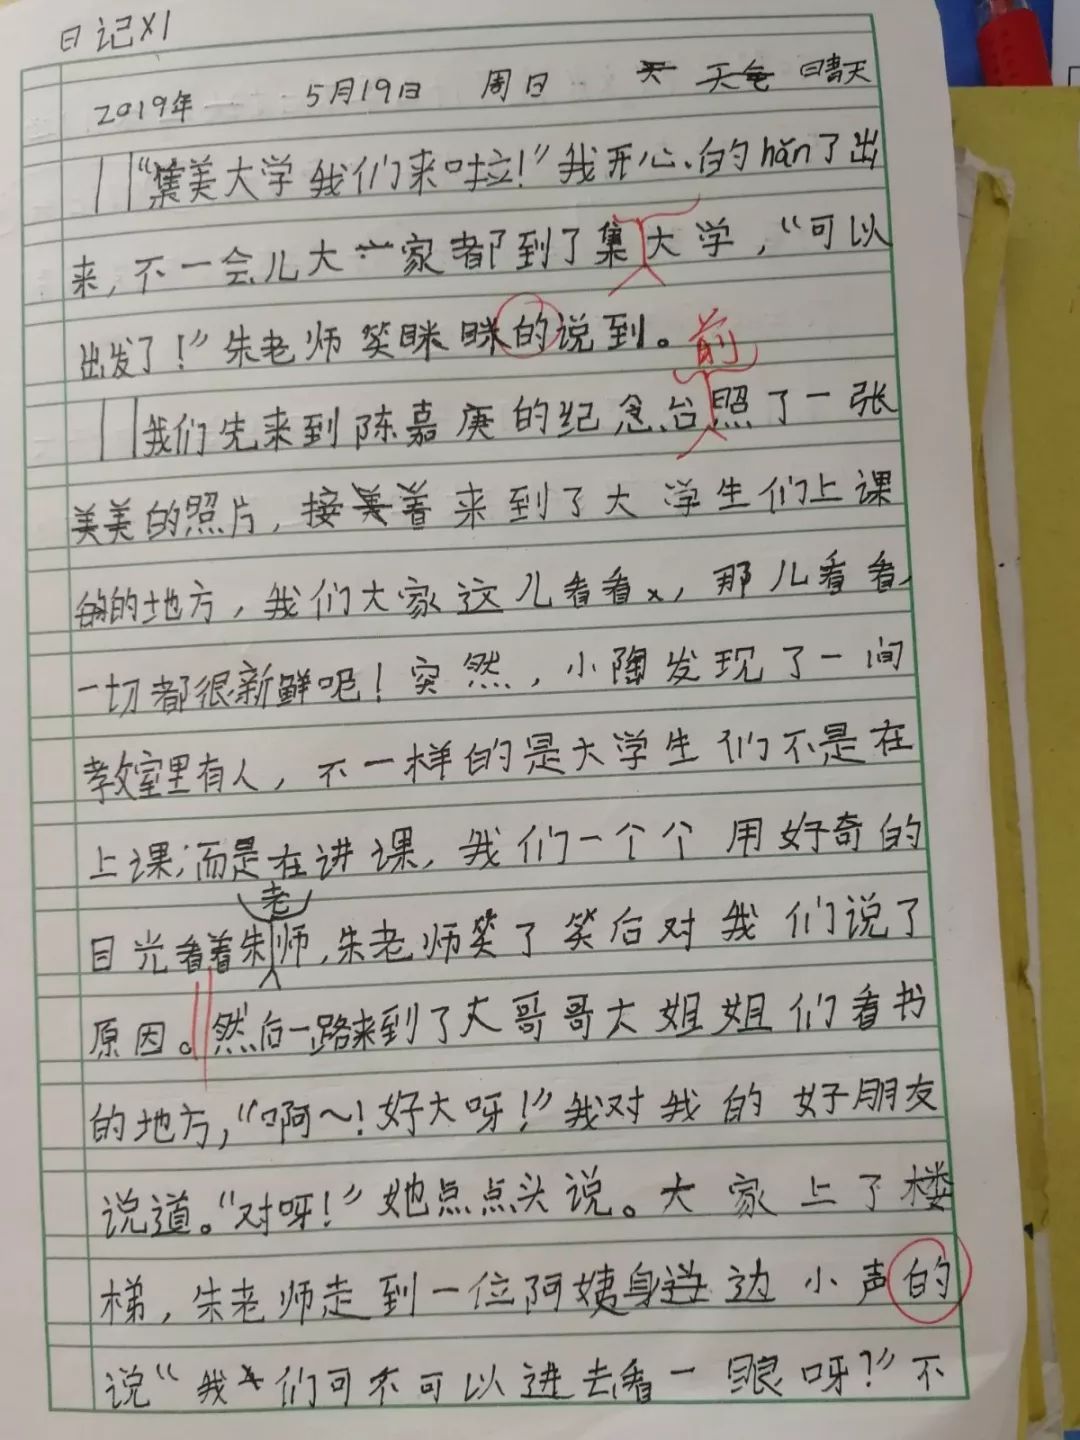 日记XI
2019年 5月19日 周日 天气 晴天
“集美大学我们来啦!”我开心的hǎn了出
来,不一会儿大家都到了集大学,“可以
出发了!”朱老师笑眯眯的说到。
前
我们先来到陈嘉庚的纪念台照了一张
美美的照片,接着来到了大学生们上课
的地方,我们大家这儿看看,那儿看看,
一切都很新鲜呢!突然,小陶发现了一间
教室里有人,不一样的是大学生们不是在
上课,而是在讲课,我们一个个用好奇的
老
目光看着朱师,朱老师笑了笑后对我们说了
原因。然后一路来到了大哥哥大姐姐们看书
的地方,“啊~!好大呀!”我对我的好朋友
说道。“对呀!”她点点头说。大家上了楼
梯,朱老师走到一位阿姨身边小声的
说“我们可不可以进去看一眼呀?”不